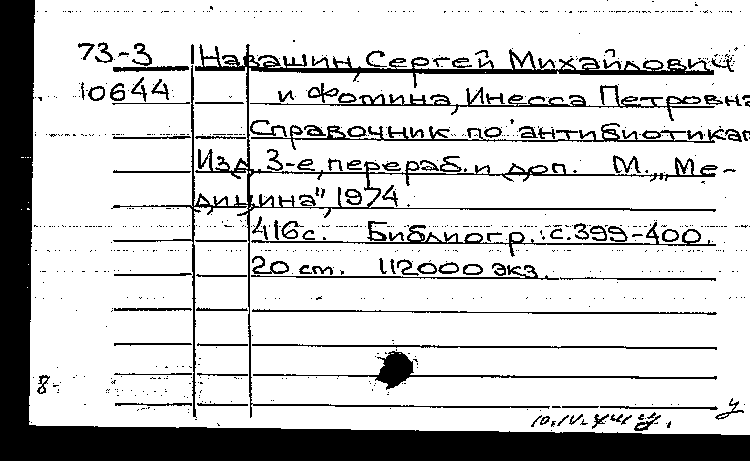 73-3 Навашин, Сергей Михайлович
10644 и Фомина, Инесса Петровна
Справочник по антибиотикам
Изд. 3-е, перераб. и доп. М., „Ме-
дицина", 1974.
416с. Библиогр.: с.399-400.
20 см. 112000 экз.
8-
у